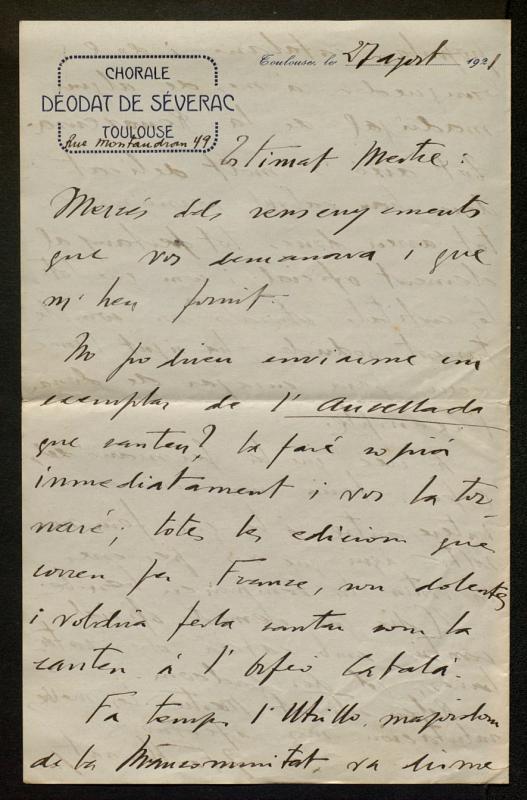 CHORALE
DÉODAT DE SÉVERAC
TOULOUSE
Rue Montaudran 49
Toulouse, le 27 agost 1921
Estimat Mestre:
Mercés dels rensenyements
que vos demanava i que
m'heu fornit.
No podrieu enviarme un
exemplar de l'Aucellada
que canteu? la faré copiar
inmediatament i vos la tor-
naré; totes les edicions que
corren per França, son dolentes
i voldria ferla cantar com la
canten á l'Orfeó Catalá.
Fa temps l'Utrillo, majordom
de la Mancomunitat, va dirme